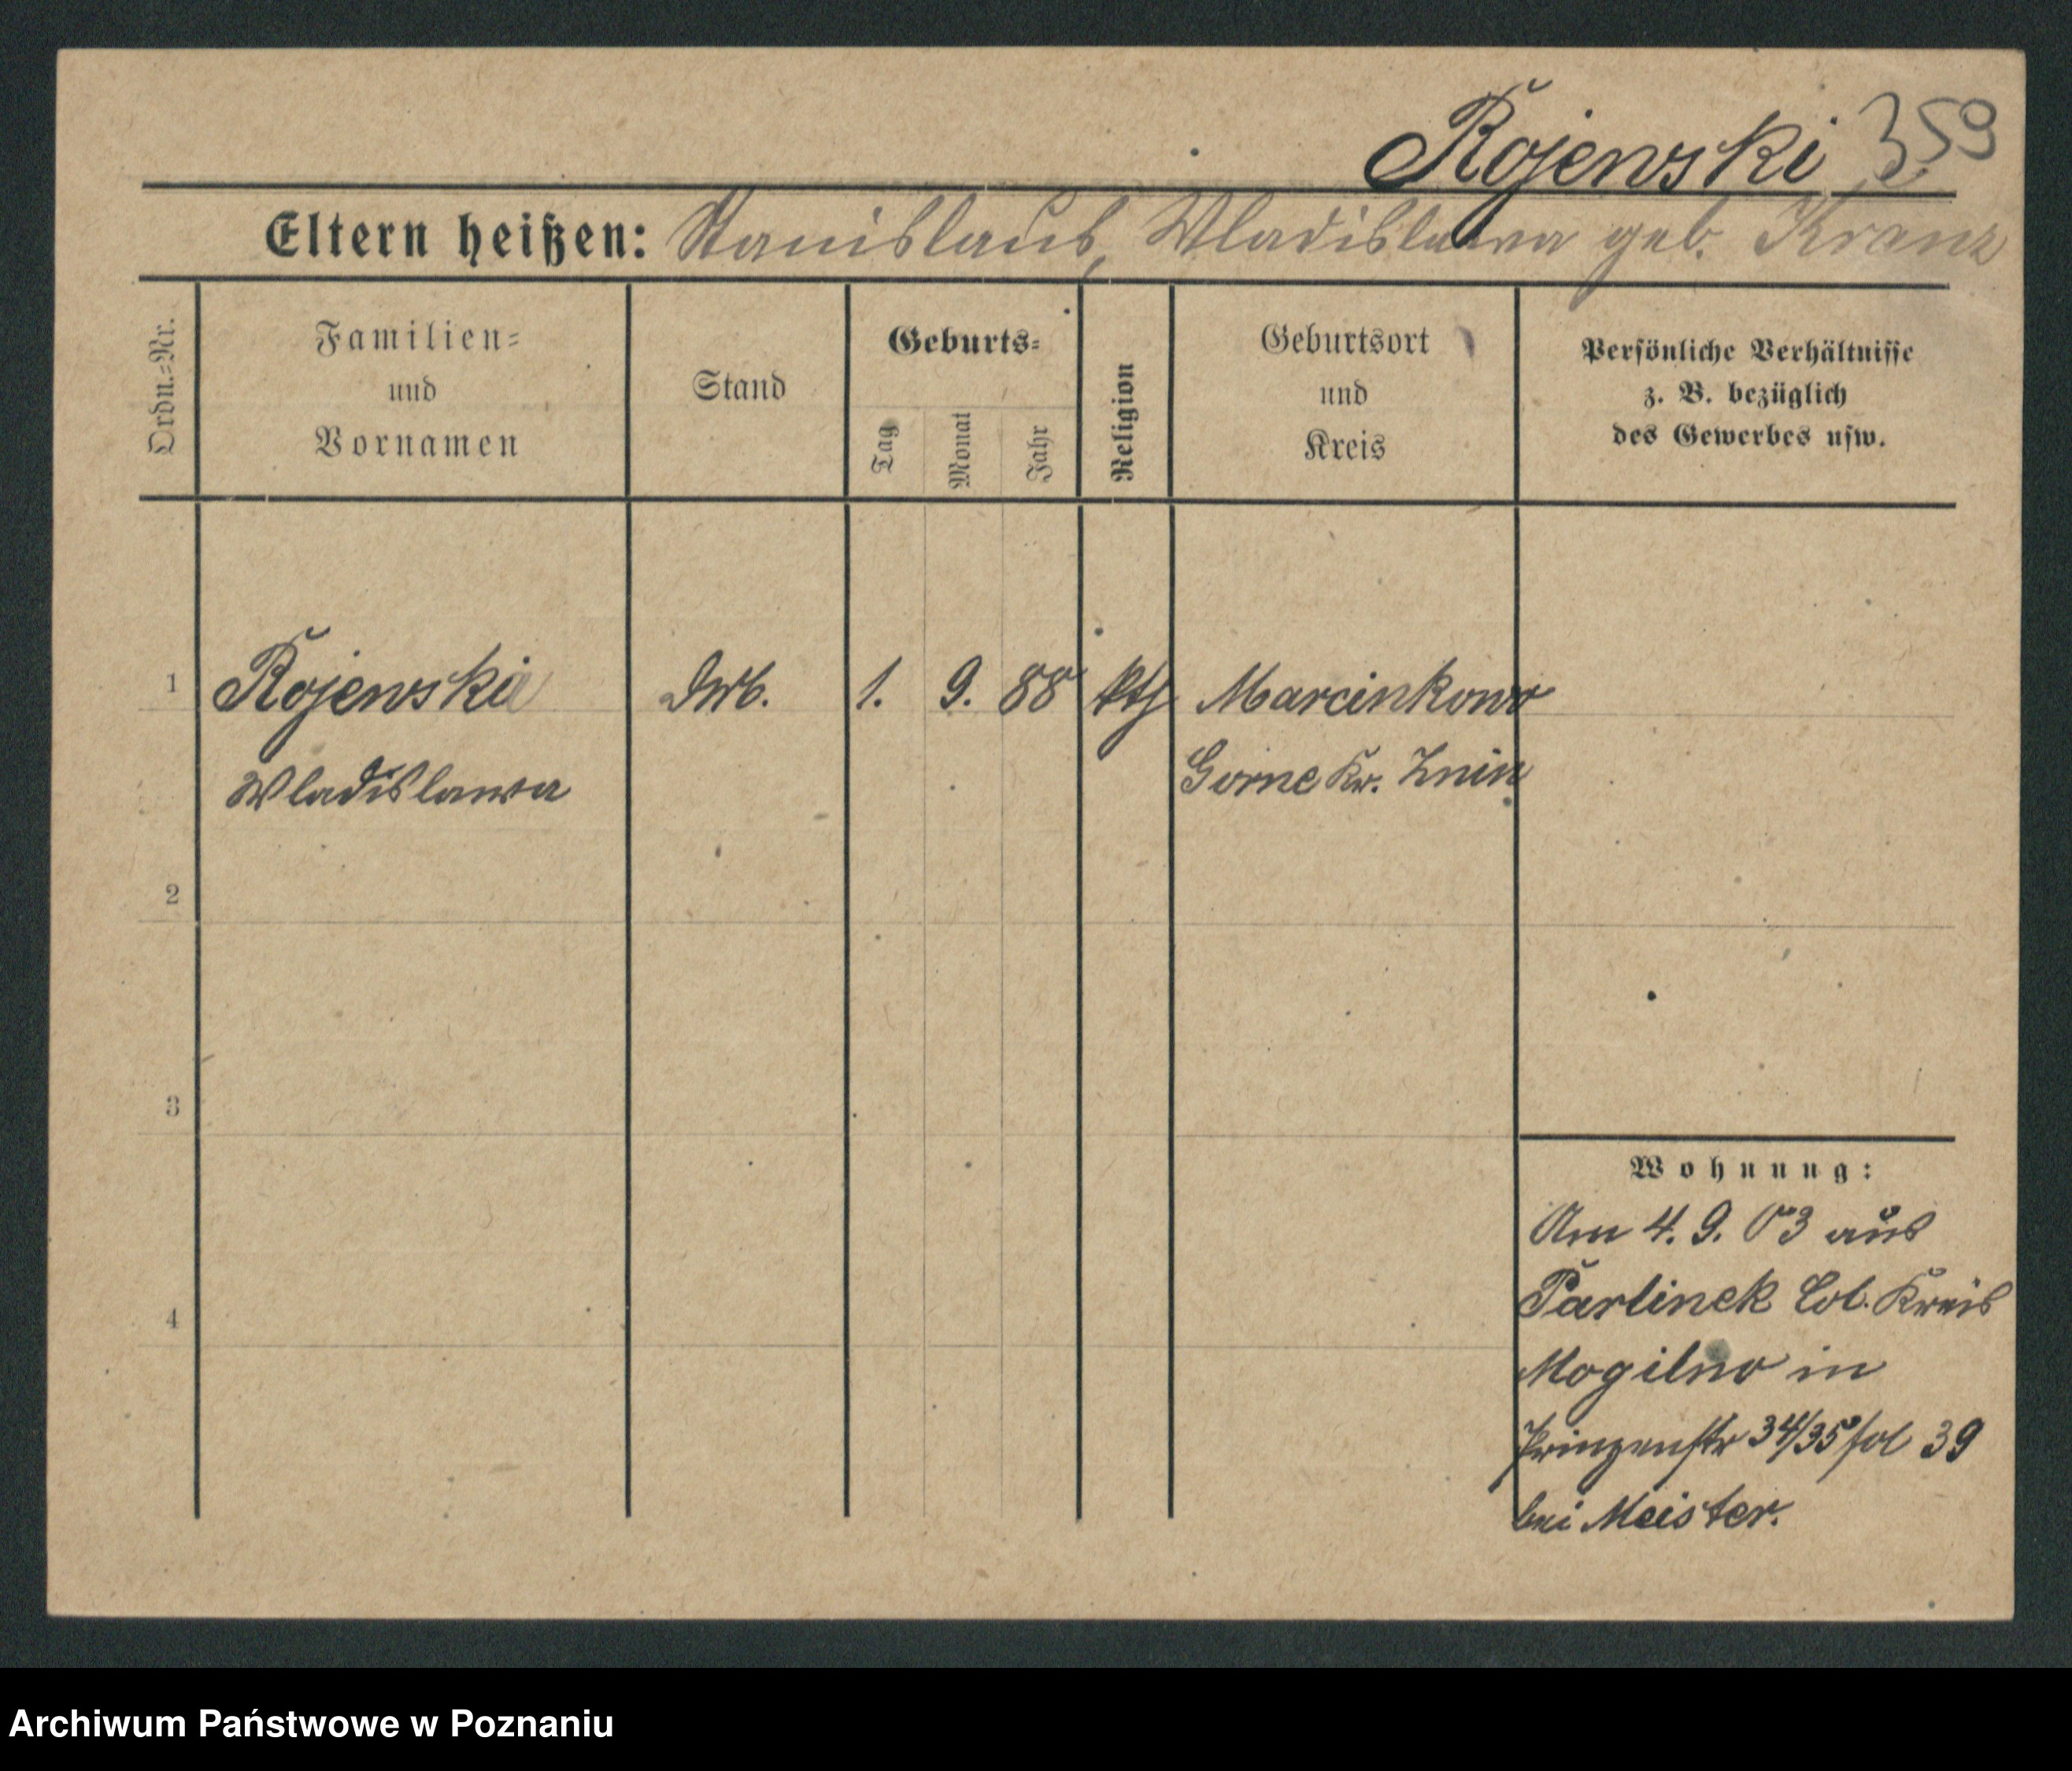 Rojewski 359
Eltern heißen: Stanislaus, Wladislawa geb. Kranz
Ordn.-Nr.
Familien-
und
Vornamen
Stand
Geburts-
Tag
Monat
Jahr
Religion
Geburtsort
und
Kreis
Persönliche Verhältnisse
z. B. bezüglich
des Gewerbes usw.
1 Rojewska 1. 9. 88 kth Marcinkowo
Wladislawa Gorne Kr. Znin
2
3
4
Wohnung:
Am 4. 9. 03 aus
Parlinek Col. Kreis
Mogilno in
Prinzenstr 34/35 fol 39
bei Meister.
Archiwum Państwowe w Poznaniu